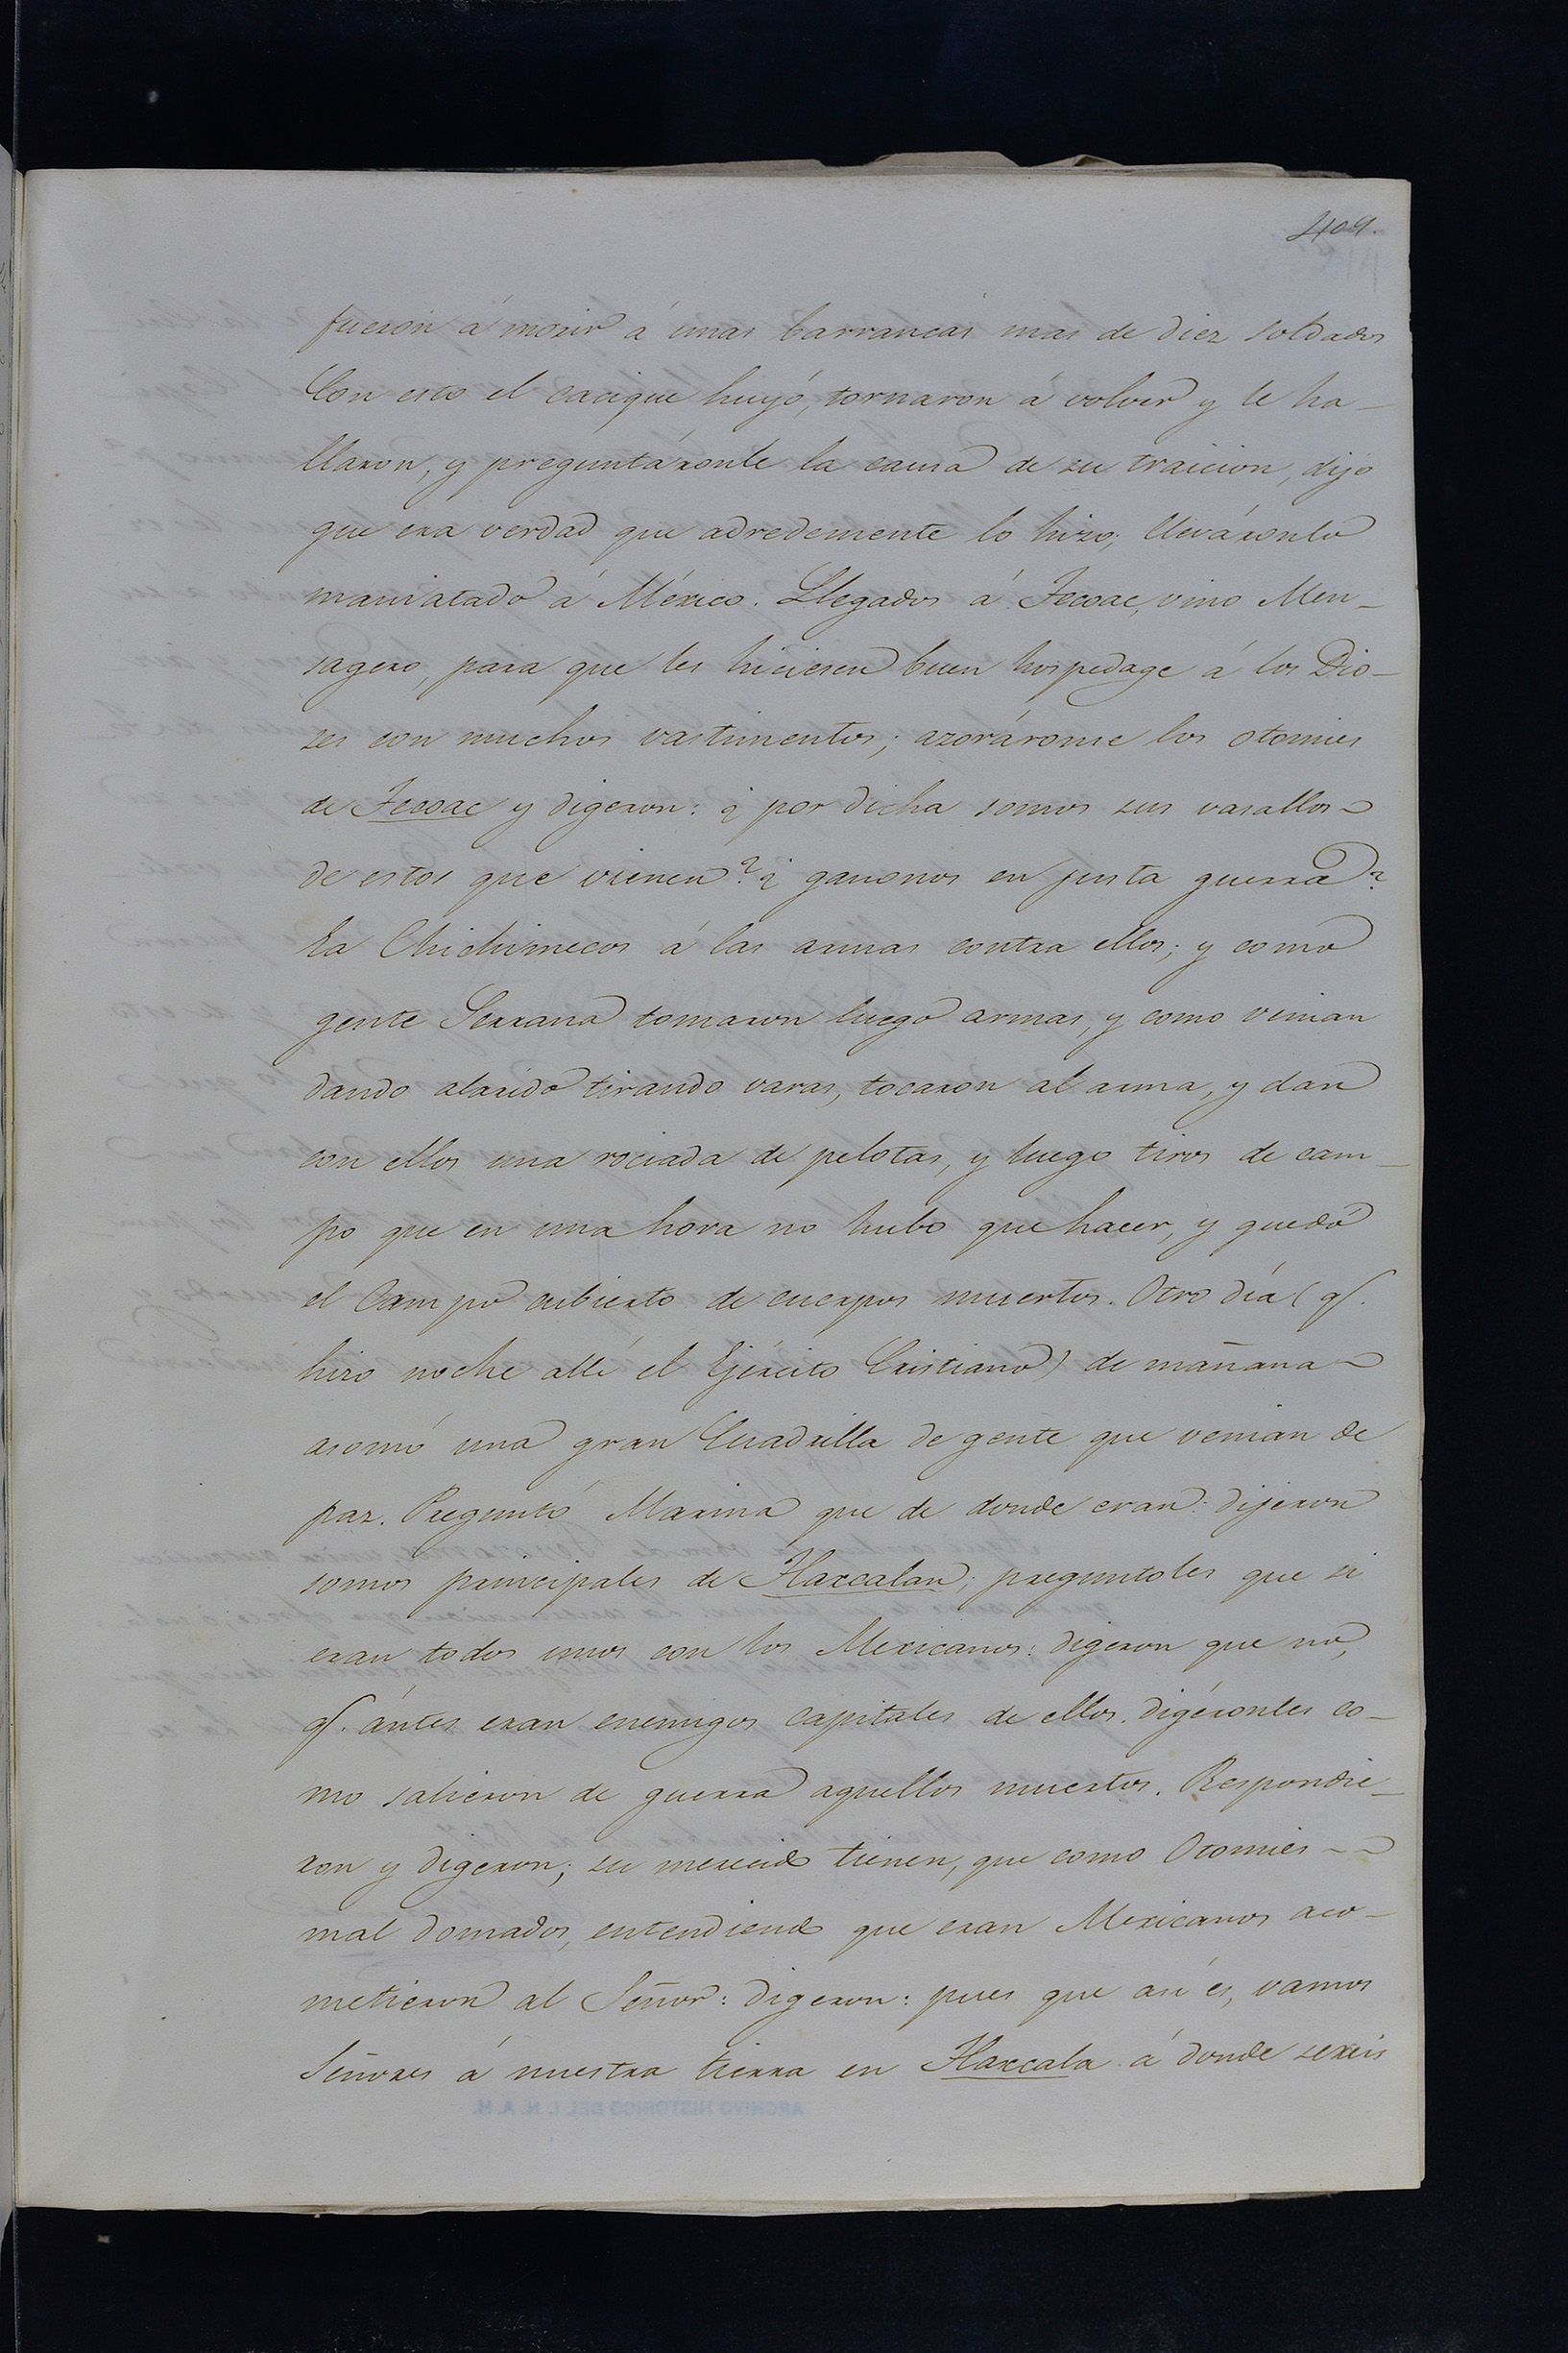 409.
fueron á morir á unas barrancas mas de diez soldados
Con esto el cacique huyó, tornaron á volver y le ha-
llaron, y preguntáronle la causa de su traicion, dijo
que era verdad que adredemente lo hizo; lleváronlo
maniatado á México. Llegados á Tecoac, vino Men-
sagero, para que les hiciesen buen hospedage á los Dio-
ses con muchos vastimentos; azoráronse los otomies
de Tecoac y digeron: ¿por dicha somos sus vasallos
de estos que vienen? ¿ganonos en justa guerra?
Ea Chichimecos á las armas contra ellos; y como
gente Serrana tomaron luego armas, y como venian
dando alarido tirando varas, tocaron al arma, y dan
con ellos una rociada de pelotas, y luego tiros de cam-
po que en una hora no hubo que hacer, y quedó
el Campo cubierto de cuerpos muertos. Otro día (q.
hizo noche allí el Ejército Cristiano) de mañana
asomó una gran Cuadrilla de gente que venian de
paz. Preguntó Marina que de donde eran: dijeron
somos principales de Tlaxcalan; preguntoles que si
eran todos unos con los Mexicanos: digeron que no,
q. ántes eran enemigos capitales de ellos. digéronles co-
mo salieron de guerra aquellos muertos. Respondie-
ron y digeron; su merecido tienen, que como Otomies
mal domados, entendiendo que eran Mexicanos aco-
metieron al Señor: digeron: pues que así es, vamos
Señores á nuestra tierra en Tlaxcala á donde sereis
ARCHIVO HISTORICO DEL I. N. A. H.